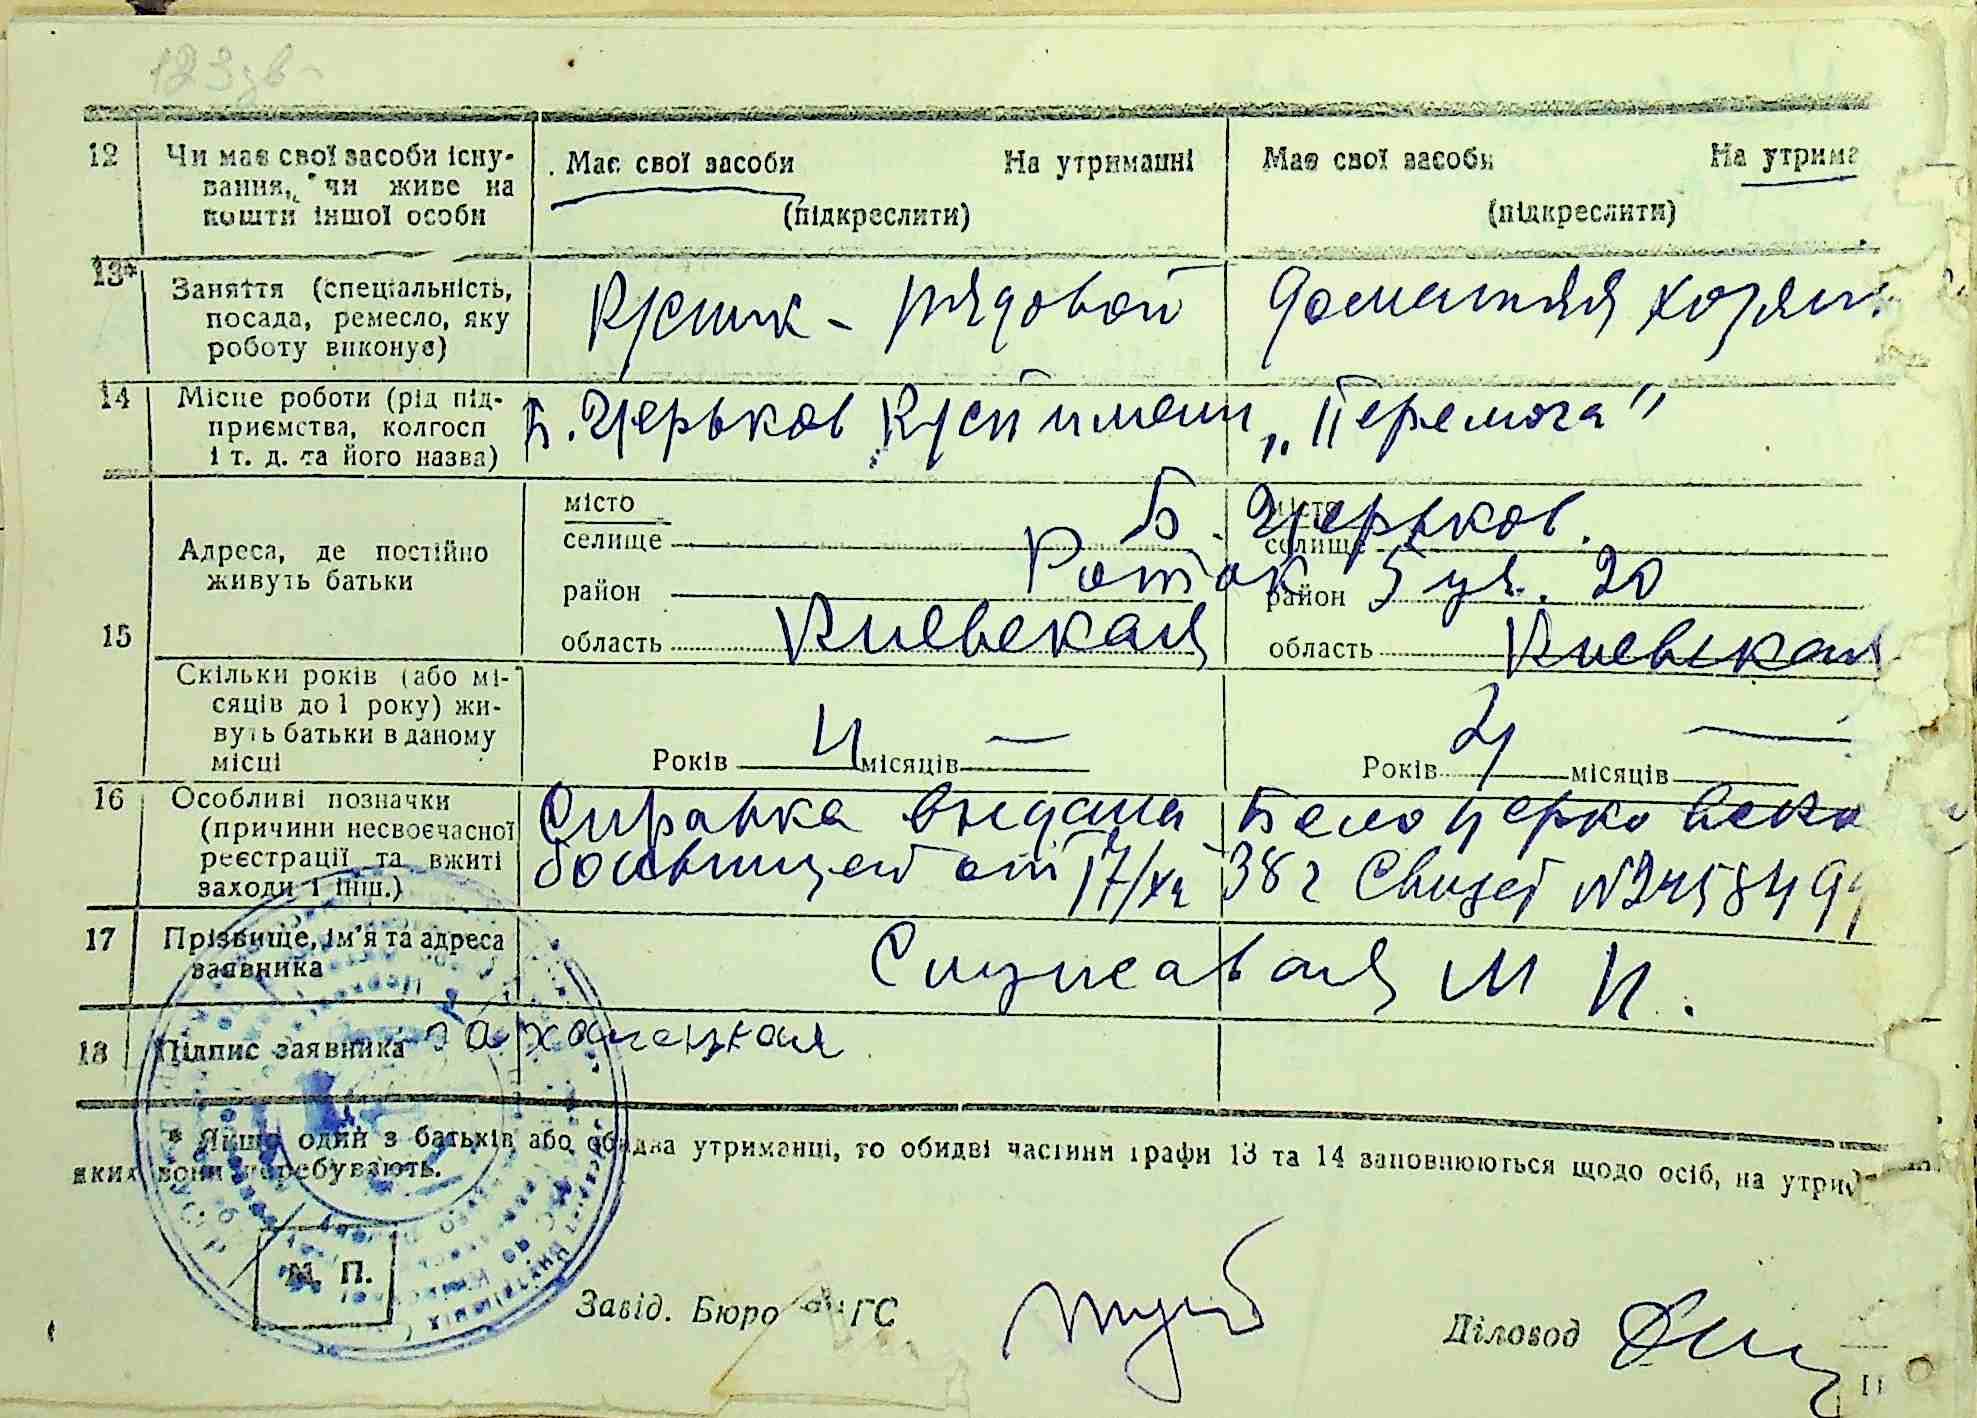 123 зв
12 Чи має свої засоби існу-
вання, чи живе на
кошти іншої особи
Має свої засоби На утриманні
(підкреслити)
Має свої засоби На утрима
(підкреслити)
13* Заняття (спеціальність,
посада, ремесло, яку
роботу виконує)
рядовой
домашняя хозяй
14 Місце роботи (рід під-
приємства, колгосп
і т. д. та його назва)
Б. Церьков имени „Перемога"
15 Адреса, де постійно
живуть батьки
місто
селище
район
область Киевская
місто
селище
район
область Киевская
Б. Церьков.
Роток 5 ул. 20
Скільки років (або мі-
сяців до 1 року) жи-
вуть батьки в даному
місці
Років місяців —
Років місяців —
16 Особливі позначки
(причини несвоєчасної
реєстрації та вжиті
заходи і інш.)
Справка выдана Белоцерковско
больницей от 17/XII 38 г Свидет №
17 Прізвище, ім'я та адреса
заявника
М И.
18 Підпис заявника
* Якщо один з батьків або обидва утриманці, то обидві частини графи 13 та 14 заповнюються щодо осіб, на утри
яких вони перебувають.
М. П.
Завід. Бюро ЗАГС
Діловод